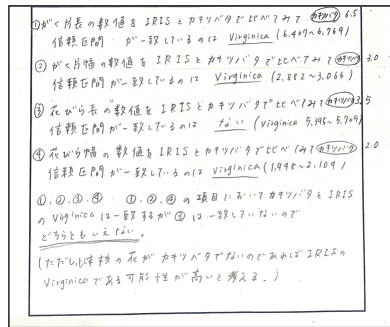 ①がく片長の数値をIRISとカキツバタで比べてみて カキツバタ 6.5
信頼区間が一致しているのは Virginica (6.407~6.769)
②がく片幅の数値をIRISとカキツバタで比べてみて カキツバタ 3.0
信頼区間が一致しているのは Virginica (2.882~3.066)
③花びら長の数値をIRISとカキツバタで比べてみて カキツバタ 3.5
信頼区間が一致しているのは ない (Virginica 5.396~5.709)
④花びら幅の数値をIRISとカキツバタで比べてみて カキツバタ 2.0
信頼区間が一致しているのは Virginica (1.948~2.104)
①,②,③,④ ①,②,④の項目においてカキツバタとIRIS
のVirginicaは一致するが③は一致していないので
どちらともいえない。
(ただし 種の花がカキツバタでないのであればIRISの
Virginicaである可能性が高いと考える。)